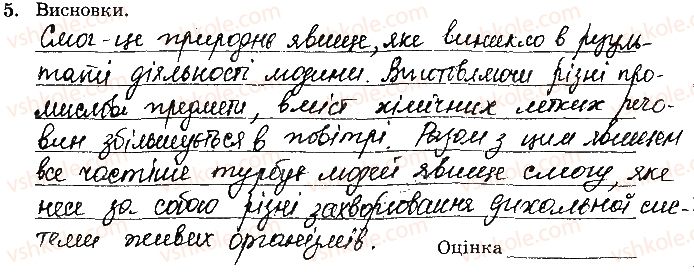 5. Висновки.
Смог - це природне явище, яке виникло в резуль-
таті діяльності людини. Виготовляючи різні про-
мислові предмети, вміст хімічних летких речо-
вин збільшується в повітрі. Разом з цим явищем
все частіше турбує людей явище смогу, яке
несе за собою різні захворювання дихальної сис-
теми живих організмів. Оцінка